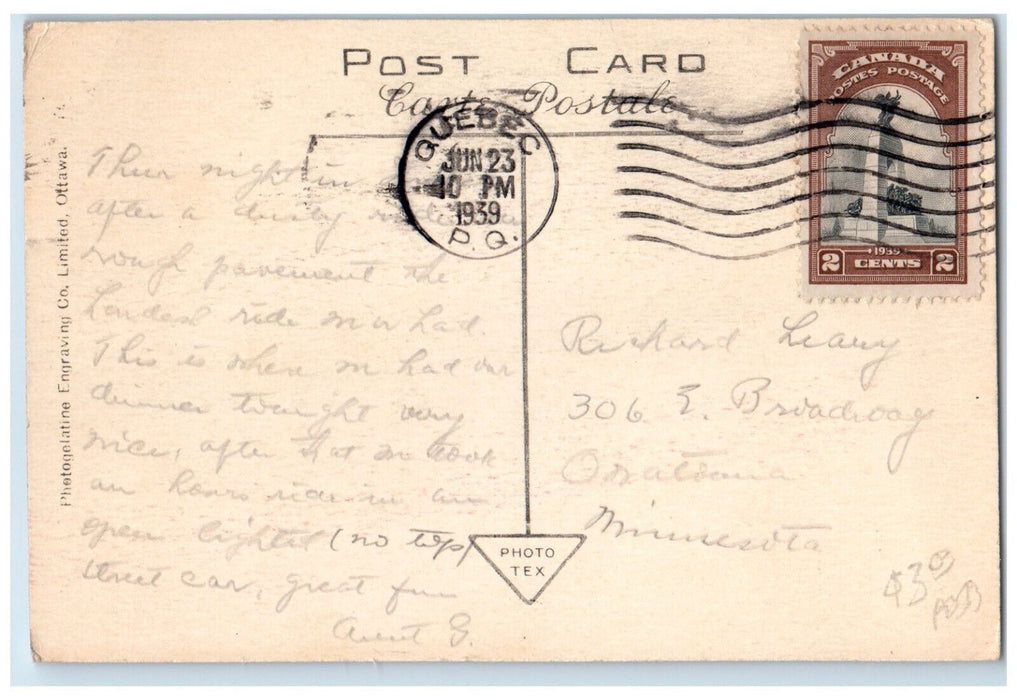 POST CARD
Carte Postale
CANADA
POSTES POSTAGE
1939
2 CENTS 2
QUEBEC
JUN 23
10 PM
1939
P.Q.
Photogelatine Engraving Co. Limited, Ottawa.
night in
after a dusty
rough pavement the
hardest ride we had.
This is where we had our
dinner tonight very
nice, after that we took
an hours ride in an
open lighted (no top)
street car, great fun
Aunt G.
Richard Leary
306 E. Broadway
Owatonna
Minnesota
PHOTO
TEX
$3